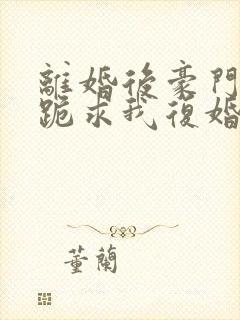 離婚後豪門
跪求我復婚
董蘭